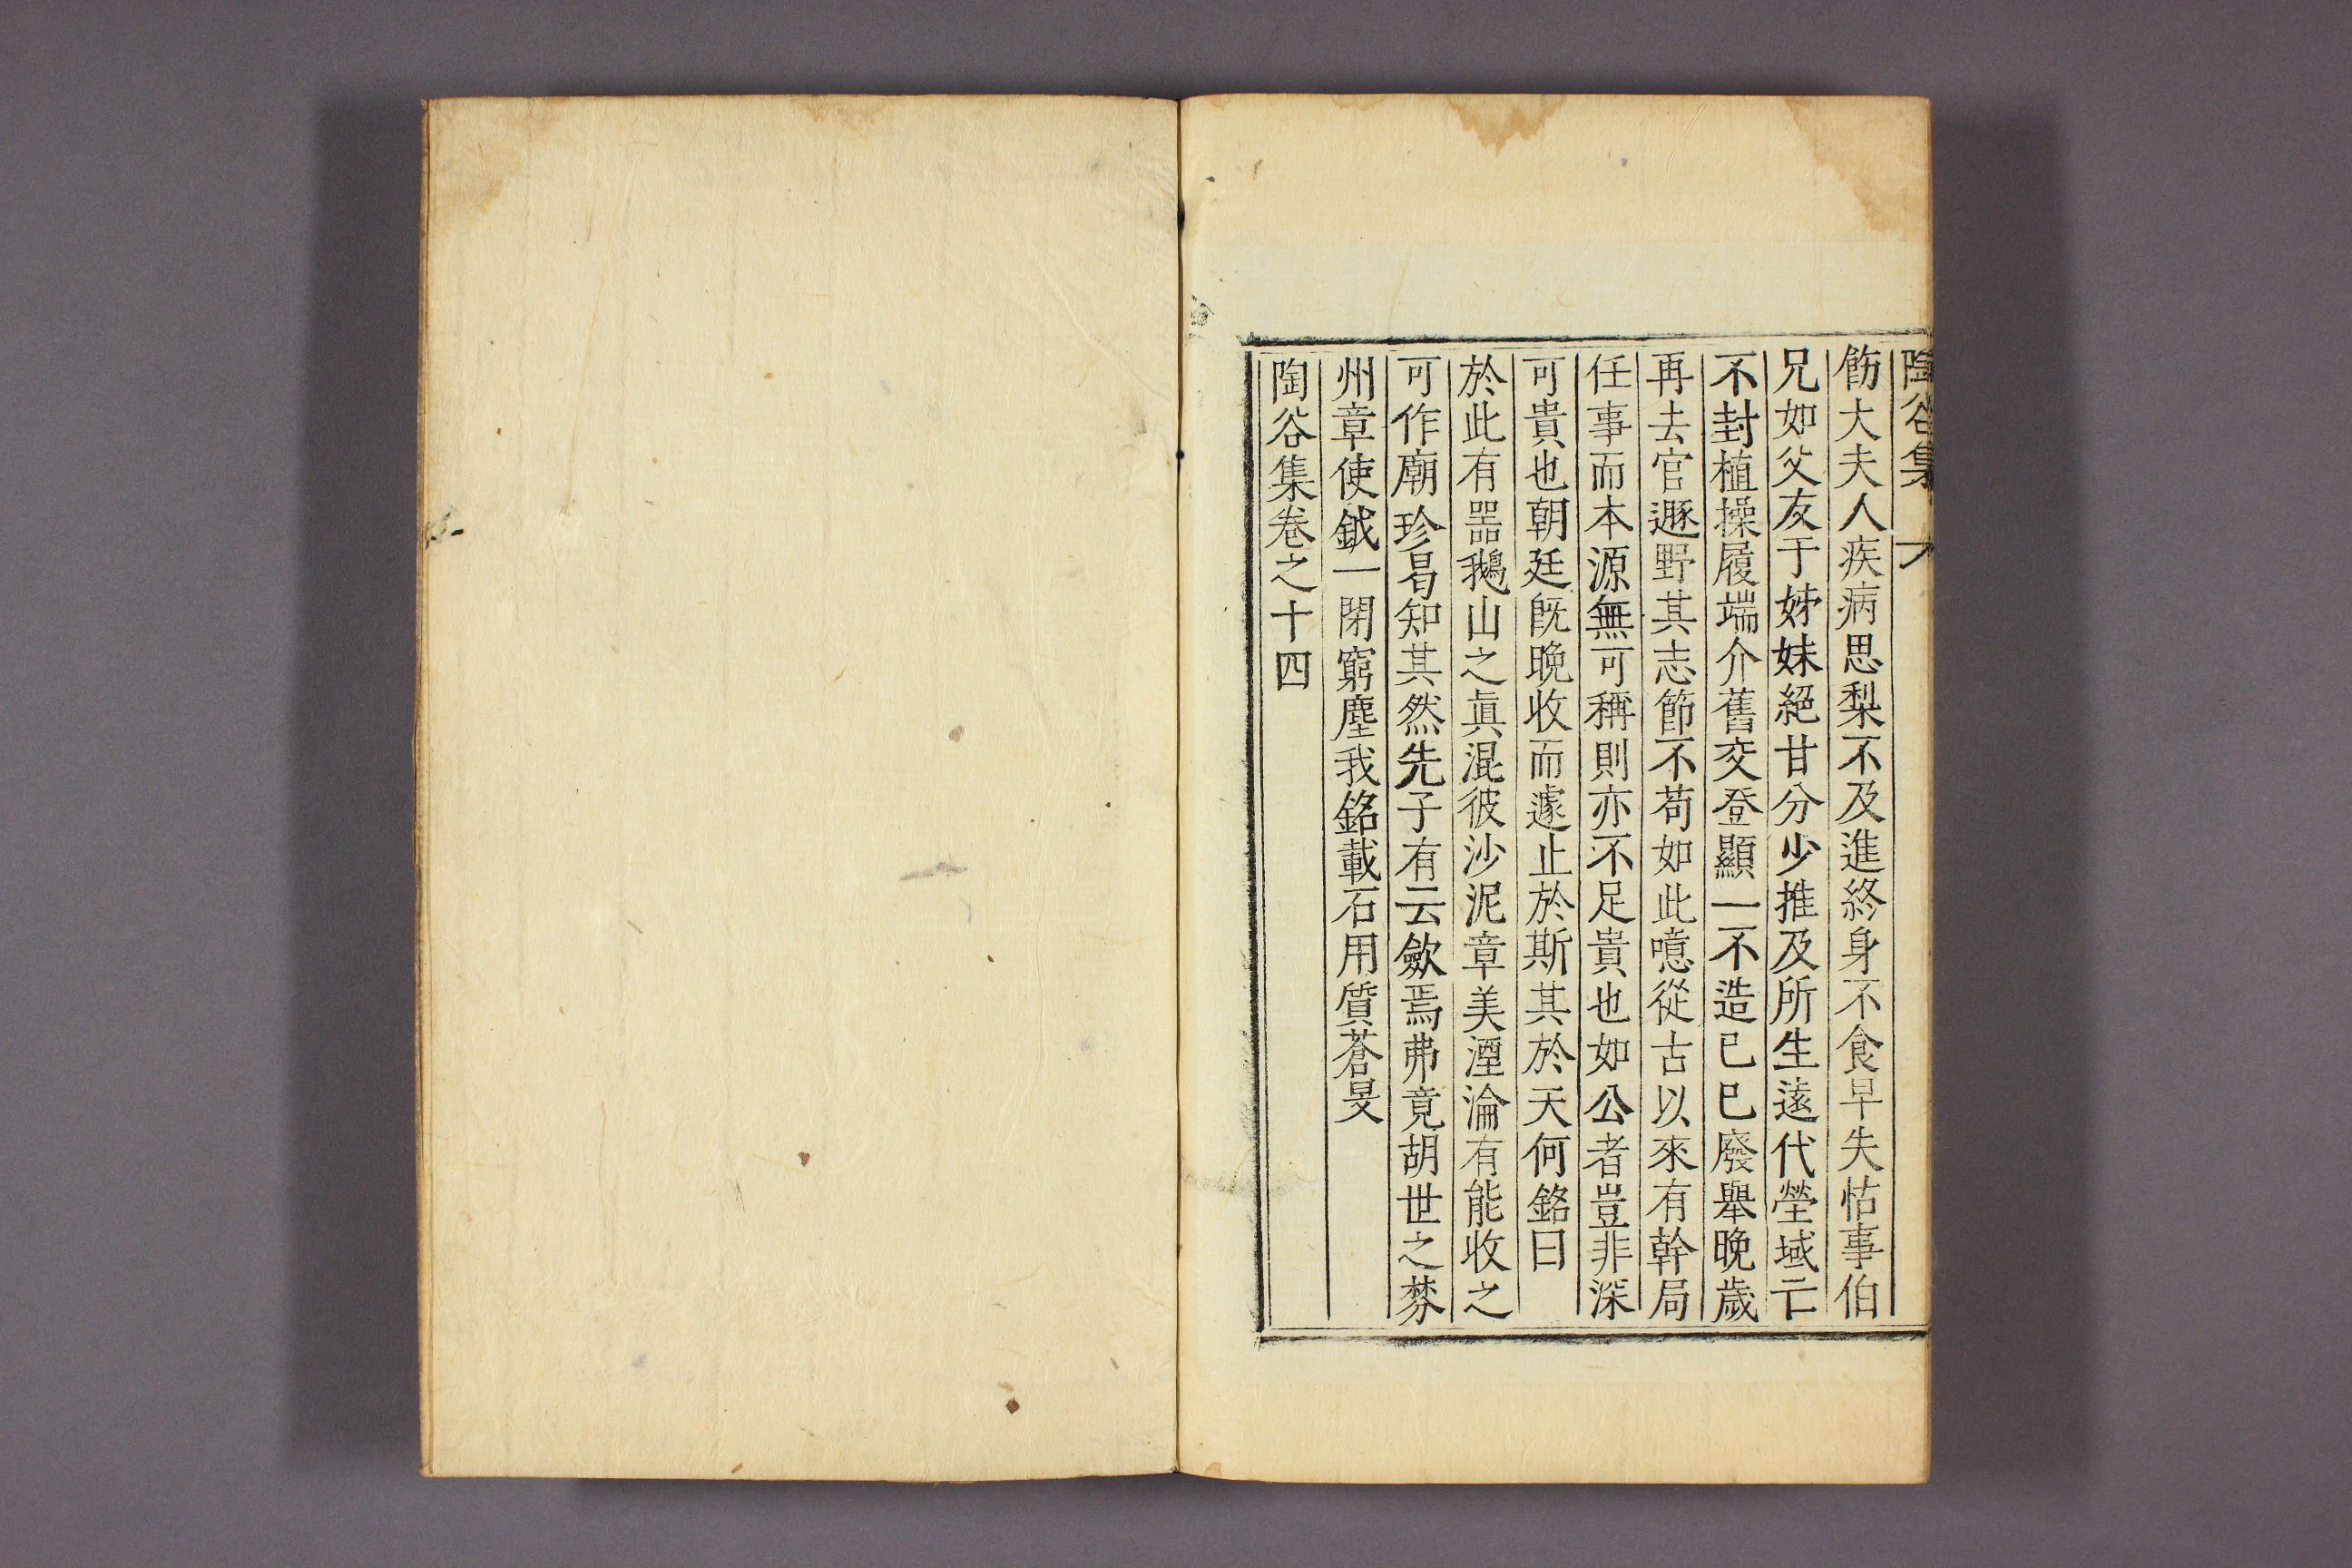 陶谷集
飭大夫人疾病思梨不及進終身不食早失怙事伯
兄如父友于姊妹絕甘分少推及所生遠代塋域亡
不封植操履端介舊交登顯一不造己巳廢舉晩歲
再去官遯野其志節不苟如此噫從古以來有幹局
任事而本源無可稱則亦不足貴也如公者豈非深
可貴也朝廷旣晩收而遽止於斯其於天何銘曰
於此有噐鵝山之眞混彼沙泥章美湮淪有能收之
可作廟珍曷知其然先子有云歛焉弗竟胡世之棼
州章使鉞一閉窮塵我銘載石用質蒼旻
陶谷集卷之十四